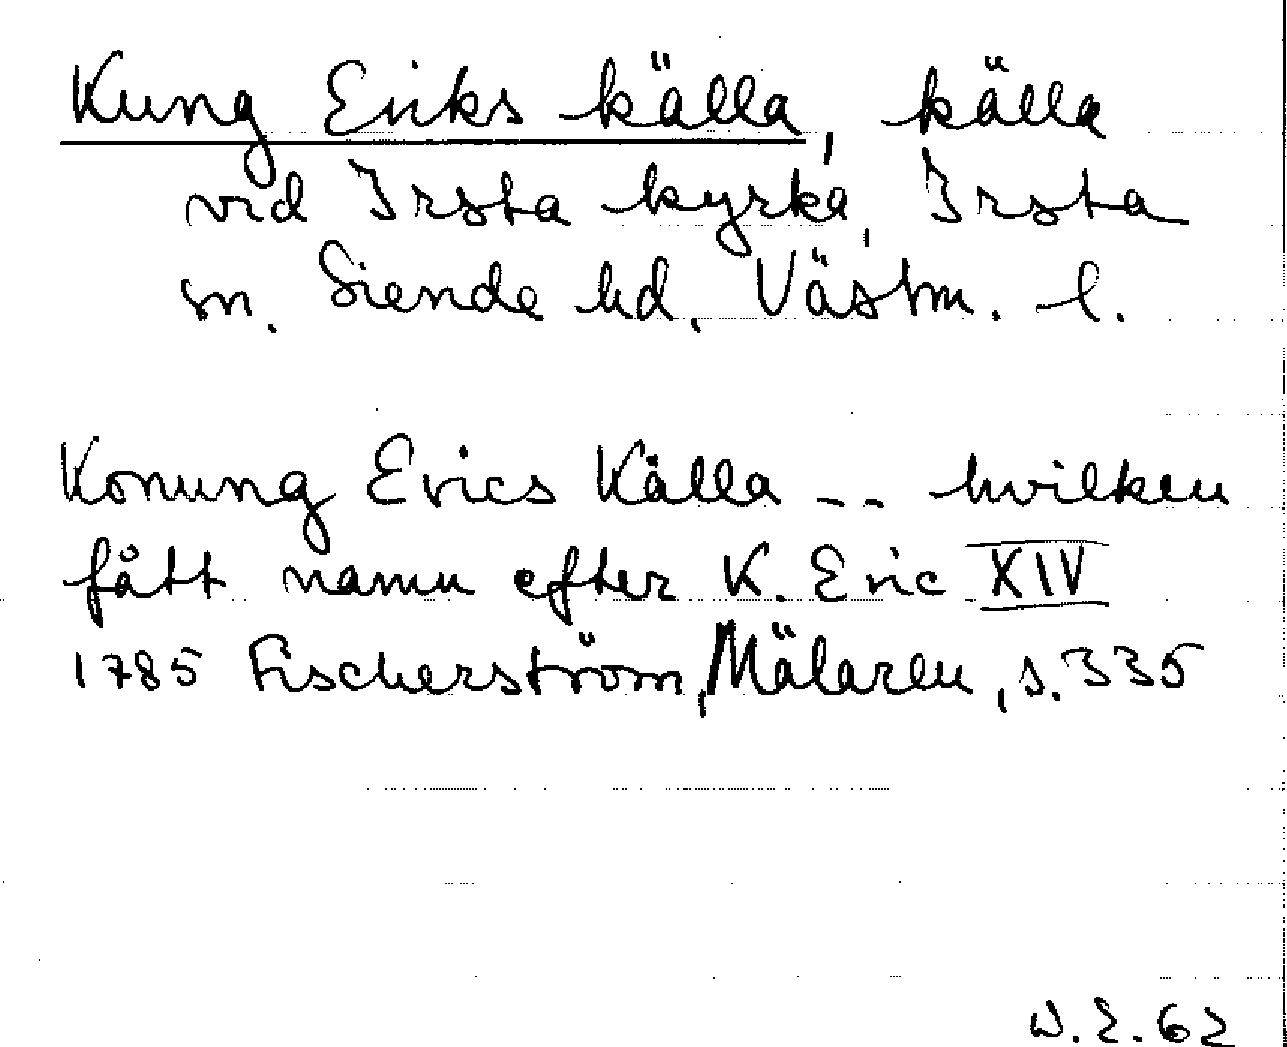 Kung Eriks källa, källa
vid Irsta kyrka, Irsta
sn. Siende hd. Västm. l.
Konung Erics Källa -- hvilken
fått namn efter K. Eric XIV
1785 Fischerström, Mälaren, s. 335
W.E. 62